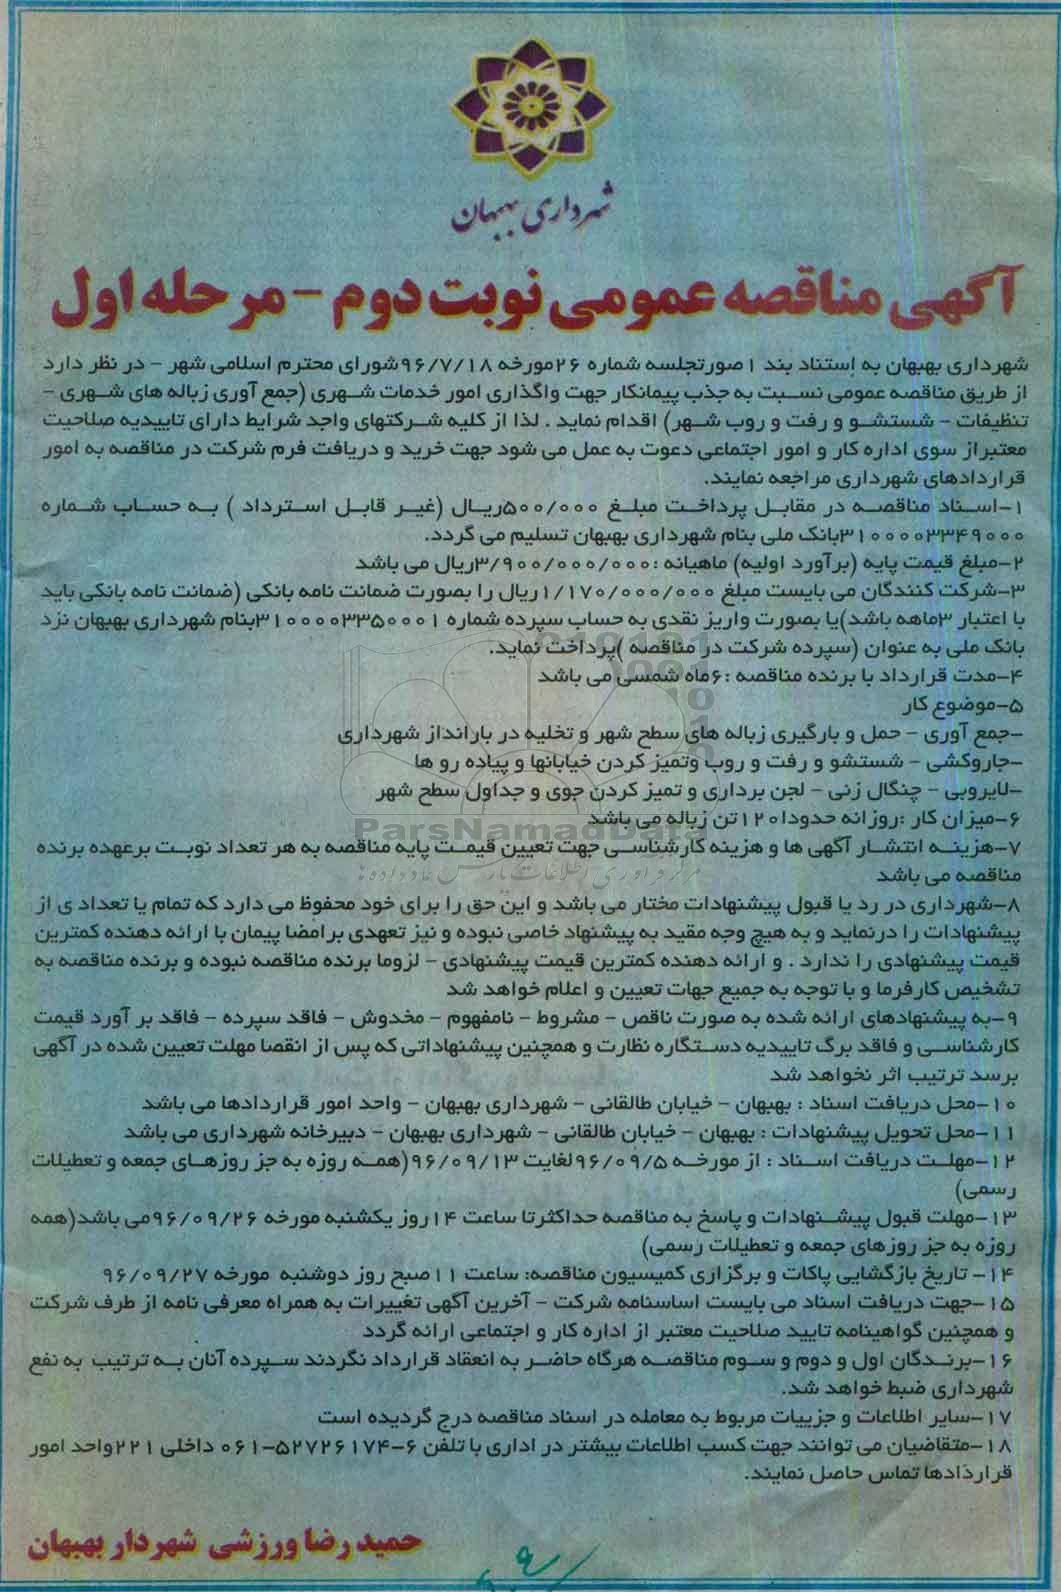 شهرداری بهبهان
آگهی مناقصه عمومی نوبت دوم - مرحله اول
شهرداری بهبهان به استناد بند ۱ صورتجلسه شماره ۲۶مورخه ۹۶/۷/۱۸شورای محترم اسلامی شهر - در نظر دارد
از طریق مناقصه عمومی نسبت به جذب پیمانکار جهت واگذاری امور خدمات شهری (جمع آوری زباله های شهری -
تنظیفات - شستشو و رفت و روب شهر) اقدام نماید . لذا از کلیه شرکتهای واجد شرایط دارای تاییدیه صلاحیت
معتبراز سوی اداره کار و امور اجتماعی دعوت به عمل می شود جهت خرید و دریافت فرم شرکت در مناقصه به امور
قراردادهای شهرداری مراجعه نمایند.
۱-اسناد مناقصه در مقابل پرداخت مبلغ ۵۰۰/۰۰۰ریال (غیر قابل استرداد ) به حساب شماره
۳۱۰۰۰۰۳۳۴۹۰۰۰بانک ملی بنام شهرداری بهبهان تسلیم می گردد.
۲-مبلغ قیمت پایه (برآورد اولیه) ماهیانه :۳/۹۰۰/۰۰۰/۰۰۰ریال می باشد
۳-شرکت کنندگان می بایست مبلغ ۱/۱۷۰/۰۰۰/۰۰۰ریال را بصورت ضمانت نامه بانکی (ضمانت نامه بانکی باید
با اعتبار ۳ماهه باشد)یا بصورت واریز نقدی به حساب سپرده شماره ۳۱۰۰۰۰۳۳۵۰۰۰۱بنام شهرداری بهبهان نزد
بانک ملی به عنوان (سپرده شرکت در مناقصه )پرداخت نماید.
۴-مدت قرارداد با برنده مناقصه :۶ماه شمسی می باشد
۵-موضوع کار
-جمع آوری - حمل و بارگیری زباله های سطح شهر و تخلیه در بارانداز شهرداری
-جاروکشی - شستشو و رفت و روب وتمیز کردن خیابانها و پیاده رو ها
-لایروبی - چنگال زنی - لجن برداری و تمیز کردن جوی و جداول سطح شهر
۶-میزان کار :روزانه حدودا۱۲۰تن زباله می باشد
ParsNamadData
۷-هزینه انتشار آگهی ها و هزینه کارشناسی جهت تعیین قیمت پایه مناقصه به هر تعداد نوبت برعهده برنده
مناقصه می باشد
۸-شهرداری در رد یا قبول پیشنهادات مختار می باشد و این حق را برای خود محفوظ می دارد که تمام یا تعداد ی از
پیشنهادات را درنماید و به هیچ وجه مقید به پیشنهاد خاصی نبوده و نیز تعهدی برامضا پیمان با ارائه دهنده کمترین
قیمت پیشنهادی را ندارد . و ارائه دهنده کمترین قیمت پیشنهادی - لزوما برنده مناقصه نبوده و برنده مناقصه به
تشخیص کارفرما و با توجه به جمیع جهات تعیین و اعلام خواهد شد
۹-به پیشنهادهای ارائه شده به صورت ناقص - مشروط - نامفهوم - مخدوش - فاقد سپرده - فاقد بر آورد قیمت
کارشناسی و فاقد برگ تاییدیه دستگاره نظارت و همچنین پیشنهاداتی که پس از انقضا مهلت تعیین شده در آگهی
برسد ترتیب اثر نخواهد شد
۱۰-محل دریافت اسناد : بهبهان - خیابان طالقانی - شهرداری بهبهان - واحد امور قراردادها می باشد
۱۱-محل تحویل پیشنهادات : بهبهان - خیابان طالقانی - شهرداری بهبهان - دبیرخانه شهرداری می باشد
۱۲-مهلت دریافت اسناد : از مورخه ۹۶/۰۹/۵لغایت ۹۶/۰۹/۱۳(همه روزه به جز روزهای جمعه و تعطیلات
رسمی)
۱۳-مهلت قبول پیشنهادات و پاسخ به مناقصه حداکثرتا ساعت ۱۴روز یکشنبه مورخه ۹۶/۰۹/۲۶می باشد(همه
روزه به جز روزهای جمعه و تعطیلات رسمی)
۱۴- تاریخ بازگشایی پاکات و برگزاری کمیسیون مناقصه: ساعت ۱۱صبح روز دوشنبه مورخه ۹۶/۰۹/۲۷
۱۵-جهت دریافت اسناد می بایست اساسنامه شرکت - آخرین آگهی تغییرات به همراه معرفی نامه از طرف شرکت
و همچنین گواهینامه تایید صلاحیت معتبر از اداره کار و اجتماعی ارائه گردد
۱۶-برندگان اول و دوم و سوم مناقصه هرگاه حاضر به انعقاد قرارداد نگردند سپرده آنان به ترتیب به نفع
شهرداری ضبط خواهد شد.
۱۷-سایر اطلاعات و جزییات مربوط به معامله در اسناد مناقصه درج گردیده است
۱۸-متقاضیان می توانند جهت کسب اطلاعات بیشتر در اداری با تلفن ۶-۵۲۷۲۶۱۷۴-۰۶۱ داخلی ۲۲۱واحد امور
قراردادها تماس حاصل نمایند.
حمید رضا ورزشی شهردار بهبهان